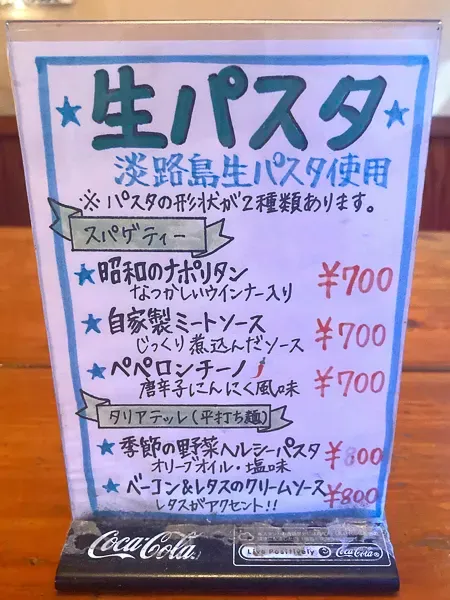 ★生パスタ★
淡路島生パスタ使用
※パスタの形状が2種類あります。
スパゲティー
★昭和のナポリタン ¥700
なつかしいウインナー入り
★自家製ミートソース ¥700
じっくり煮込んだソース
★ペペロンチーノ ¥700
唐辛子にんにく風味
タリアテッレ(平打ち麺)
★季節の野菜ヘルシーパスタ ¥800
オリーブオイル・塩味
★ベーコン&レタスのクリームソース ¥800
レタスがアクセント!!
Coca-Cola
Live Positively Coca-Cola